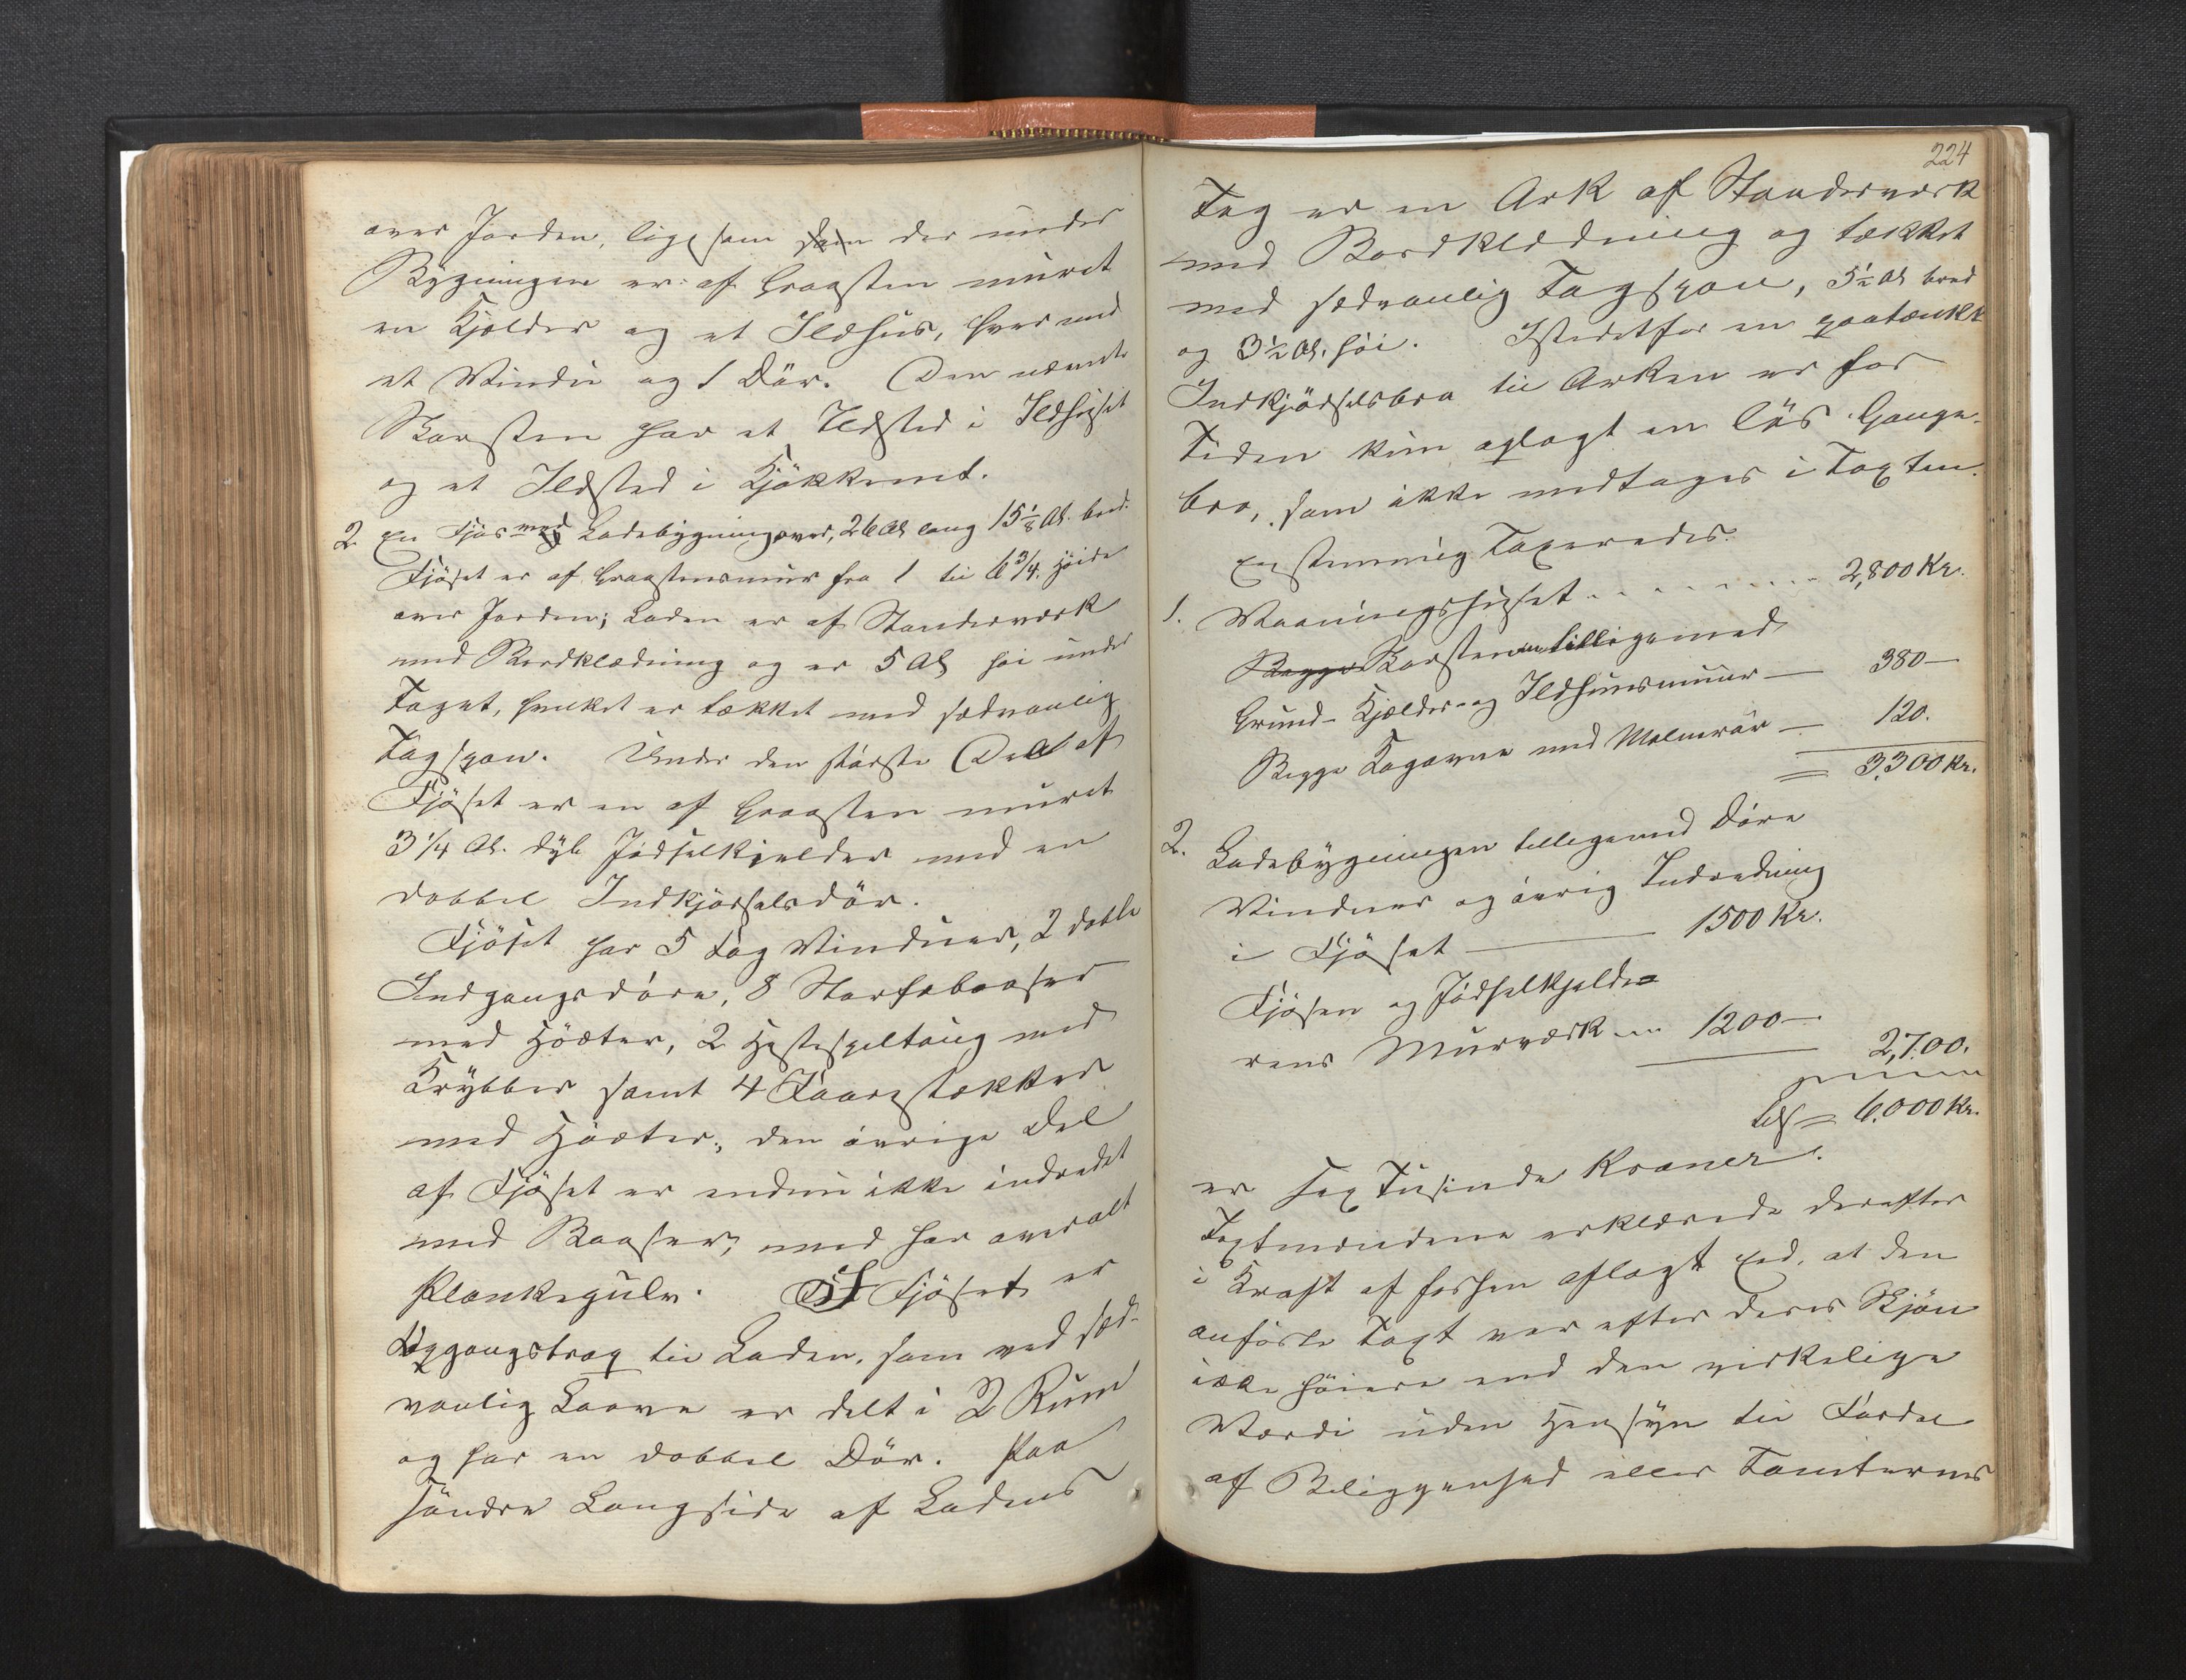 over Jorden, ligesom som der under
Bygningen er af Graasten muret
en Kjelder og et Ildhus, hver med
et Vindu og 1 Dör. Den nævnte
Skorsten har et Ildsted i Ildhuset
og et Ildsted i Kjökkenet.
2. En Fjös med Ladebygning over, 26 Al lang 15 1/8 Al. bred.
Fjöset er af Graastensmur fra 1 til 6 3/4 höide
over Jorden; Laden er af Standerværk
med Bordklædning og er 5 Al höi under
Taget, hvilket er tækket med sædvanlig
Tagspon. Under den störste Del af
Fjöset er en af Graasten muret
3 1/4 Al. dyb Jödselkjelder med en
dobbel Indkjörselsdör.
Fjöset har 5 fag Vinduer, 2 doble
Indgangsdöre, 8 Storfæbaaser
med Höæter, 2 Hestespiltaug med
Krybber samt 4 Faarestækker
med Höæter; den övrige Del
af Fjöset er endnu ikke indredet
med Baaser, med har overalt
Plankegulv. I Fjöset er
Opgangstrap til Laden, som ved sæd-
vanlig Laave er delt i 2 Rum
og har en dobbel Dör. Paa
söndre Langside af Ladens
224
Tag er en Ark af Standerværk
med Bordklædning og tækket
med sædvanlig Tagspon, 5 1/2 Al bred
og 3 1/2 Al. höi. Istedetfor en paatænkt
Indkjörselsbro til Arken er for
Tiden kun oplagt en lös Gange-
bro, som ikke medtages i Taxten.
Enstemmig Taxeredes.
1. Vaaningshuset - - - - - - - 2,800 Kr.
Begge Skorstenen tilligemed
Grund- Kjælder- og Ildhuusmuur — 380 —
Begge Kogovne med Malmrör — 120.
= 3,300 Kr.
2. Ladebygningen tilligemed Döre
Vinduer og övrig Indredning
i Fjöset — 1500 Kr.
Fjösen og Jödselkjelde=
rens Murværk — 1200 —
2,700.
Tils = 6,000 Kr.
er sex Tusinde Kroner.
Taxtmændene erklærede derefter
i Kraft af forhen aflagt Eed, at den
anförte Taxt var efter deres Skjön
ikke höiere end den virkelige
Værdi uden Hensyn til Fordel
af Beliggenhed eller Tomternes